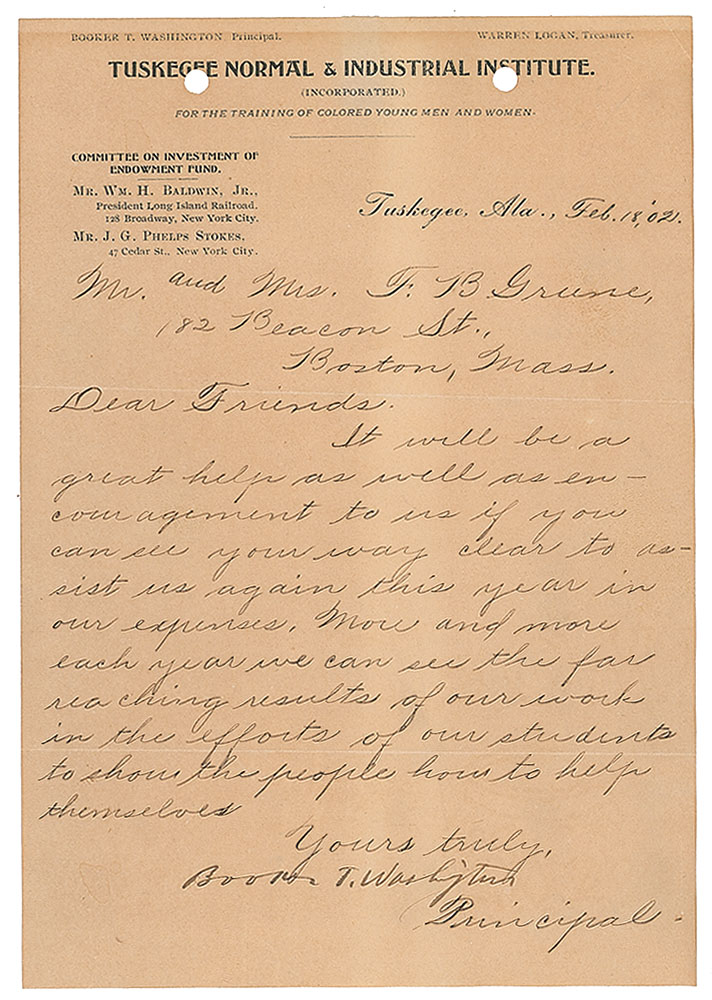 BOOKER T. WASHINGTON, Principal.
WARREN LOGAN, Treasurer.
TUSKEGEE NORMAL & INDUSTRIAL INSTITUTE.
(INCORPORATED.)
FOR THE TRAINING OF COLORED YOUNG MEN AND WOMEN.
COMMITTEE ON INVESTMENT OF
ENDOWMENT FUND.
MR. WM. H. BALDWIN, JR.,
President Long Island Railroad.
128 Broadway, New York City.
MR. J. G. PHELPS STOKES,
47 Cedar St., New York City.
Tuskegee, Ala., Feb. 18, '02.
Mr. and Mrs. F. B Grune,
182 Beacon St.,
Boston, Mass.
Dear Friends.
It will be a
great help as well as en-
couragement to us if you
can see your way clear to as-
sist us again this year in
our expenses. More and more
each year we can see the far
reaching results of our work
in the efforts of our students
to show the people how to help
themselves
Yours truly,
Booker T. Washington
Principal.